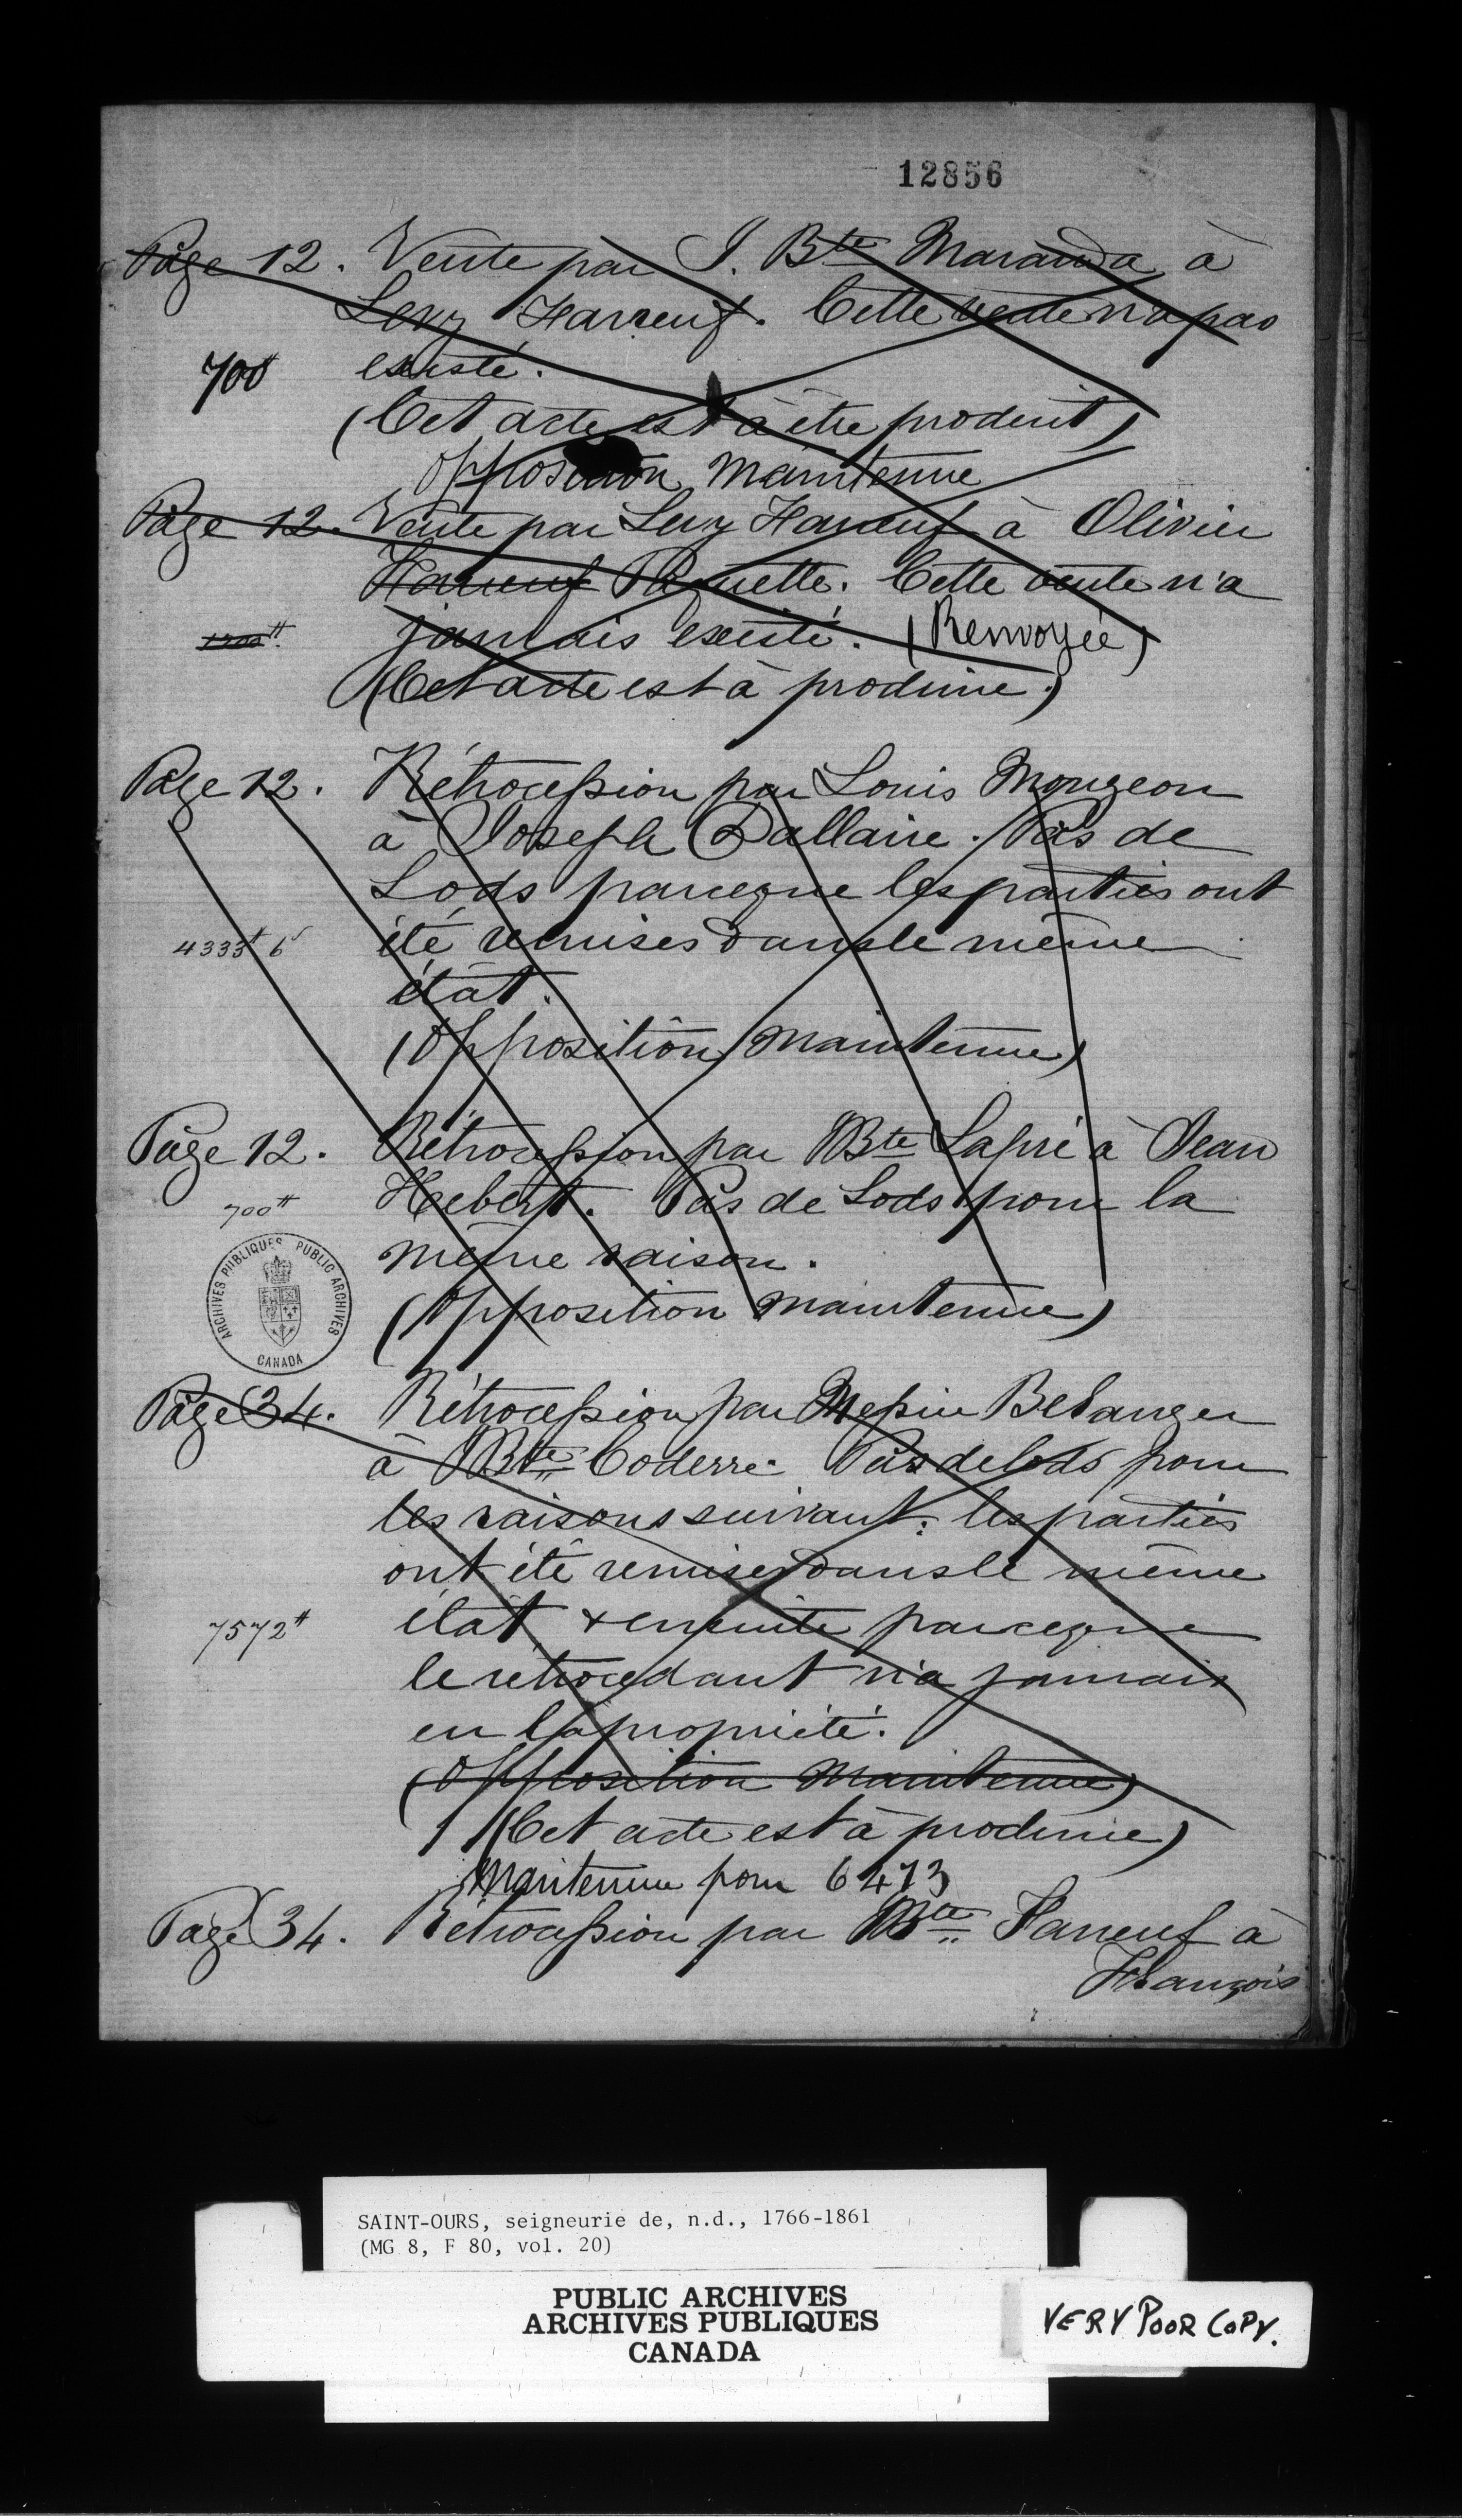 12856
Page 12. Vente par J. Bte Maranda à
Levy Harreuf. Cette vente n'a pas
700# existé.
(Cet acte est à être produit)
Opposition Maintenue
Page 12. Vente par Levy Harreuf à Olivier
Harreuf Paquette. Cette vente n'a
1200# jamais existé. (Renvoyée)
(Cet acte est à produire.)
Page 12. Rétrocession par Louis Mongeon
à Joseph Dallaire. Pas de
Lods parceque les parties ont
4333# 6s été remises dans le même
état.
(Opposition Maintenue)
Page 12. Rétrocession par JBte Lapré à Jean
700# Hebert. Pas de Lods pour la
même raison.
(Opposition Maintenue)
ARCHIVES PUBLIQUES PUBLIC ARCHIVES
CANADA
Page 34. Rétrocession par Belanger
à JBte Coderre. Pas de lods pour
les raisons suivant: les parties
ont été remises dans le même
7572# état & ensuite parceque
le rétrocedant n'a jamais
eu la propriété.
(Opposition Maintenue)
(Cet acte est à produire)
Maintenue pour 6473
Page 34. Rétrocession par JBte Harreuf à
François
SAINT-OURS, seigneurie de, n.d., 1766-1861
(MG 8, F 80, vol. 20)
PUBLIC ARCHIVES
ARCHIVES PUBLIQUES
CANADA
VERY POOR COPY.